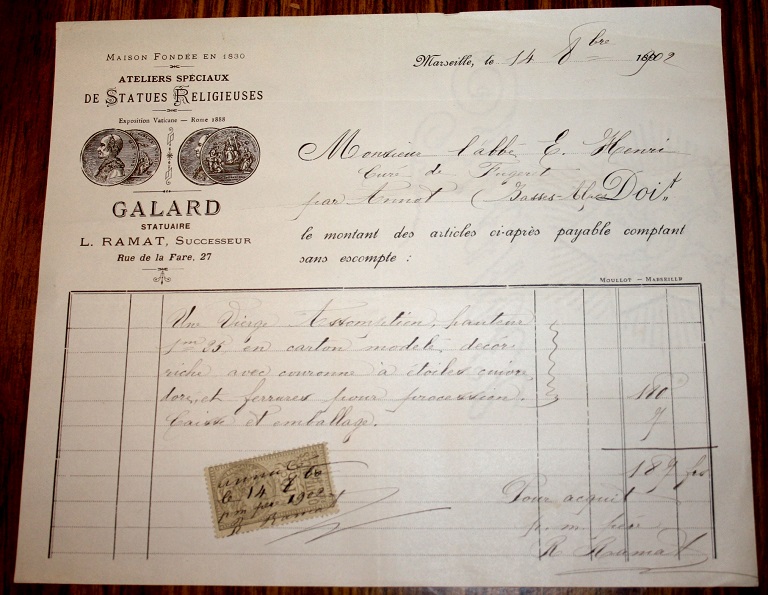 MAISON FONDÉE EN 1830
ATELIERS SPÉCIAUX
DE STATUES RELIGIEUSES
Exposition Vaticane — Rome 1888
GALARD
STATUAIRE
L. RAMAT, SUCCESSEUR
Rue de la Fare, 27
Marseille, le 14 8bre 1902
Monsieur l'abbé E. Henri
Curé de Fugeret
par Annot (Basses-Alpes) Doit
le montant des articles ci-après payable comptant
sans escompte :
MOULLOT — MARSEILLE
Une Vierge Assomption, hauteur
1m25 en carton modelé, décor
riche avec couronne à étoiles cuivre
doré, et ferrures pour procession. 180
Caisse et emballage. 7
187 frs
Pour acquit
p. m. père
R Ramat
le 14 8bre
p. m. père 1902
R Ramat